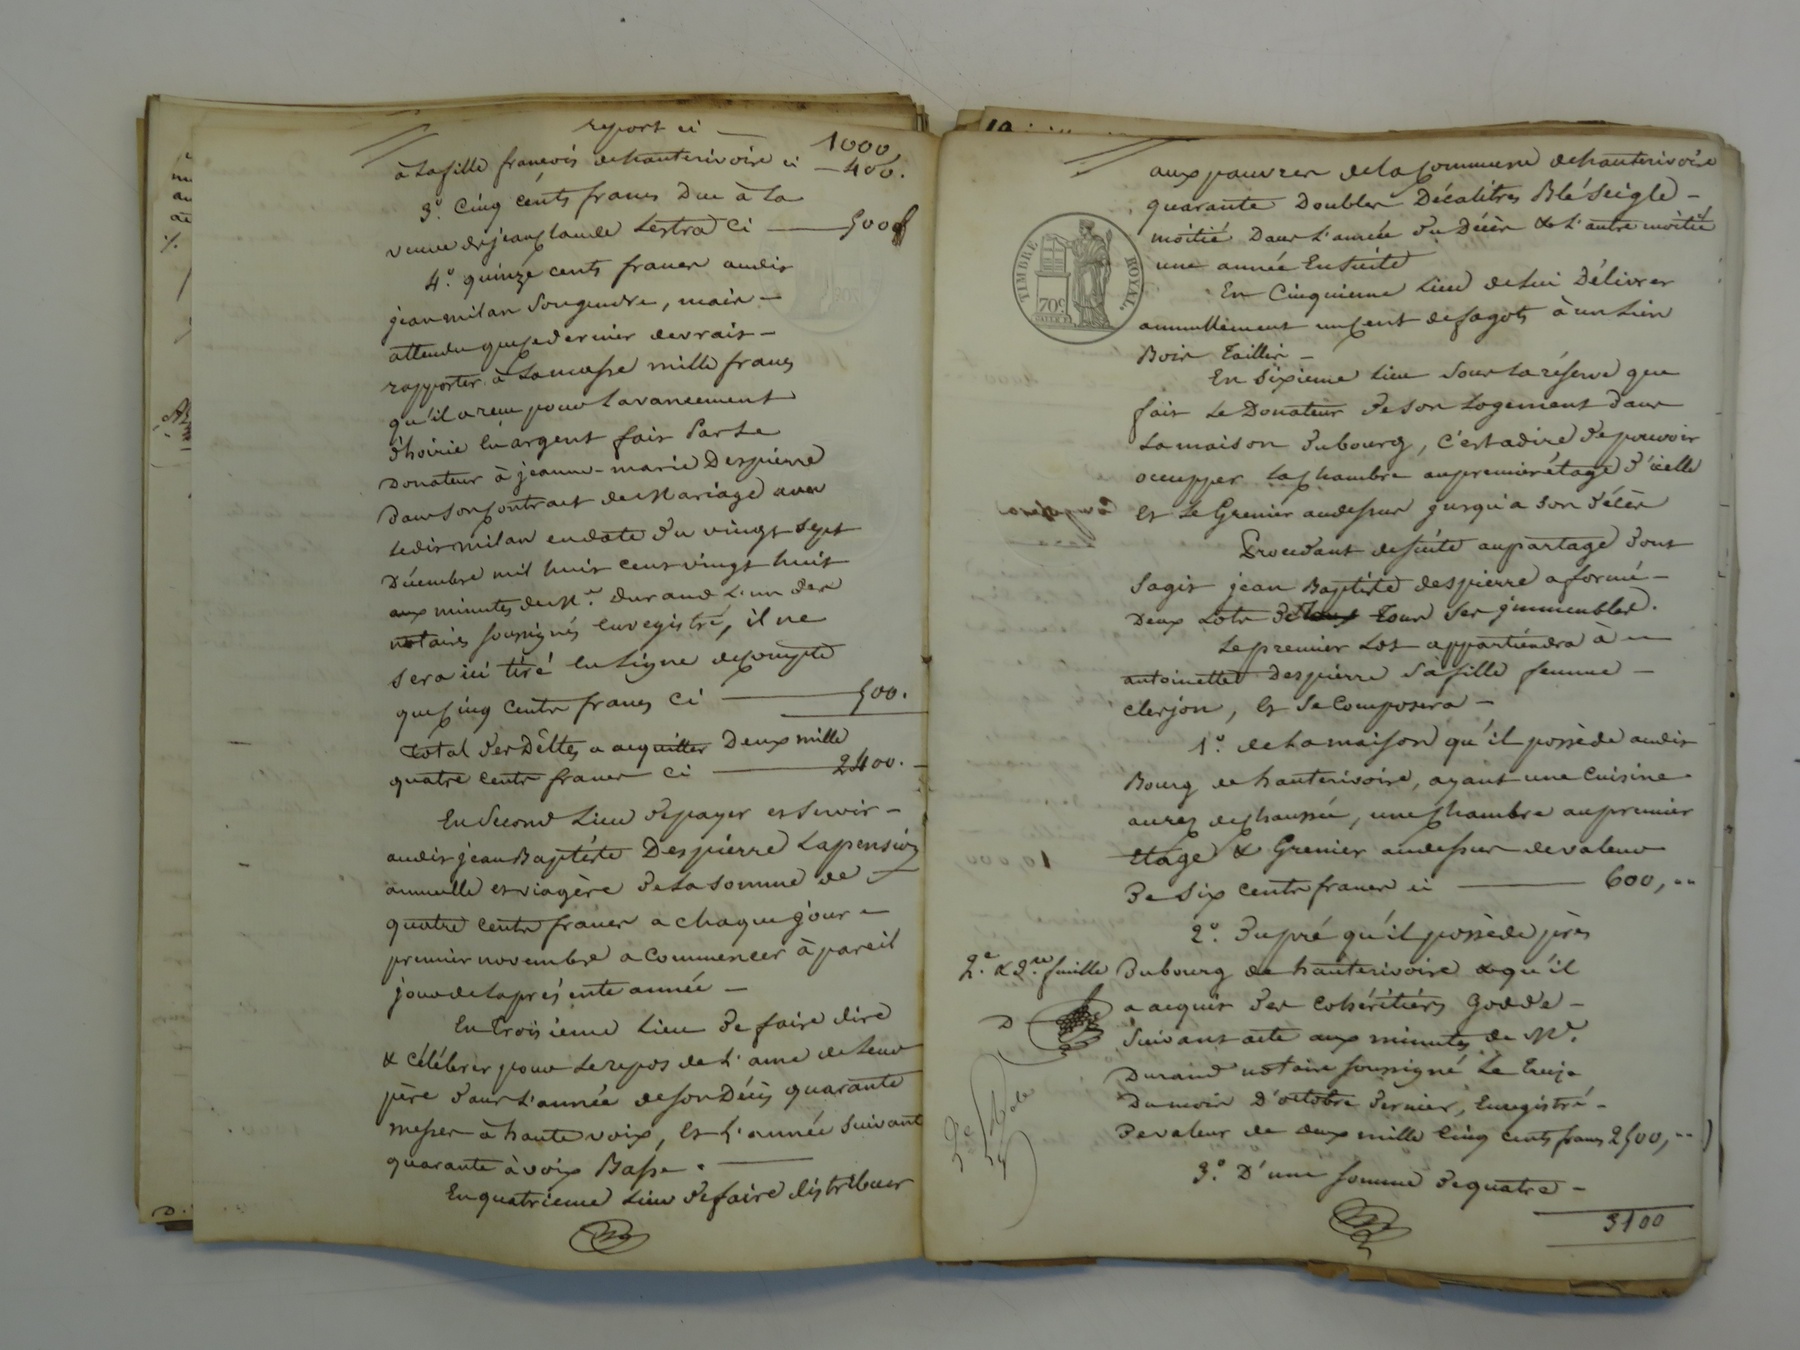 report ci — 1000
à la fille françois de hauterivoire ci — 400.
3.º Cinq cents francs Due à la
veuve de jean Claude Lestra Ci — 500 f
4.º quinze cents francs audit
jean milan Son gendre, mais —
attendu que ce dernier devrait —
rapporter à La masse mille francs
qu'il a reçu pour l'avancement
d'hoirie En argent fait Par Le
Donateur à jeanne-marie Despierre
Dans Son Contract de Mariage avec
Ledit milan en date Du vingt Sept
Décembre mil huit cent vingt huit
aux minutes de M.e Durand L'un des
notaires soussignés Enregistré, il ne
Sera ici tiré En Ligne de Compte
que Cinq Cents francs Ci — 500.
Total Des Dettes a acquitter Deux mille
quatre cents francs Ci — 2400.
En Second Lieu De payer et Servir —
audit jean Baptiste Despierre La pension
annuelle et viagère De La Somme de
quatre Cents francs a chaque jour —
premier novembre a Commencer à pareil
jour de La présente année —
En Troisieme Lieu De faire dire
& Célébrer pour Le repos de L'ame de Leur
père Dans L'année de Son Décès quarante
messes à haute voix, Et L'année Suivant
quarante à voix Basse. —
En quatrieme Lieu De faire distribuer
aux pauvres de la Commune de hauterivoire
quarante Doubles Décalitres Blé Seigle —
moitié Dans L'année Du Décès & L'autre moitié
une année Ensuite
En Cinquieme Lieu de Lui Délivrer
annuellement un Cent de fagots à un Lien
Bois Taillis —
En Sixieme Lieu Sous La réserve que
fait Le Donateur De Son Logement dans
La maison Du bourg, C'est a dire De pouvoir
occupper La Chambre au premier étage D'icelle
Et Le Grenier au dessus jusqu'a Son Décès
TIMBRE ROYAL
70 c
Procédant de Suite au partage Dont
S'agit jean Baptiste despierre a formé —
Deux Lots De Tous Ses jmmeubles.
Le premier Lot appartiendra à —
antoinette Despierre Sa fille femme —
Clerjon, Et Se Composera —
1.º de La maison qu'il possède audit
Bourg de hauterivoire, ayant une Cuisine
au rez de Chaussée, une Chambre au premier
Etage & Grenier au dessus de valeur
De Six cents francs ci — 600,"
2.º Du pré qu'il possède près
2.e & 3.e feuille
Du bourg de hauterivoire & qu'il
a acquis Des Cohéritiers Godde —
Suivant acte aux minutes de M.e
Durand notaire soussigné Le Treize
Du mois D'octobre Dernier, Enregistré —
De valeur de deux mille Cinq Cents francs 2500,"
3.º D'une somme De quatre —
3100